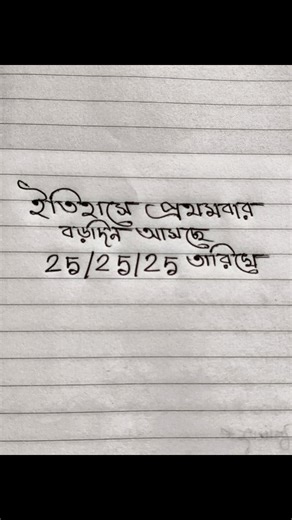 ইতিহাসে প্রথমবার
বড়দিন আসছে
25/25/25 তারিখে